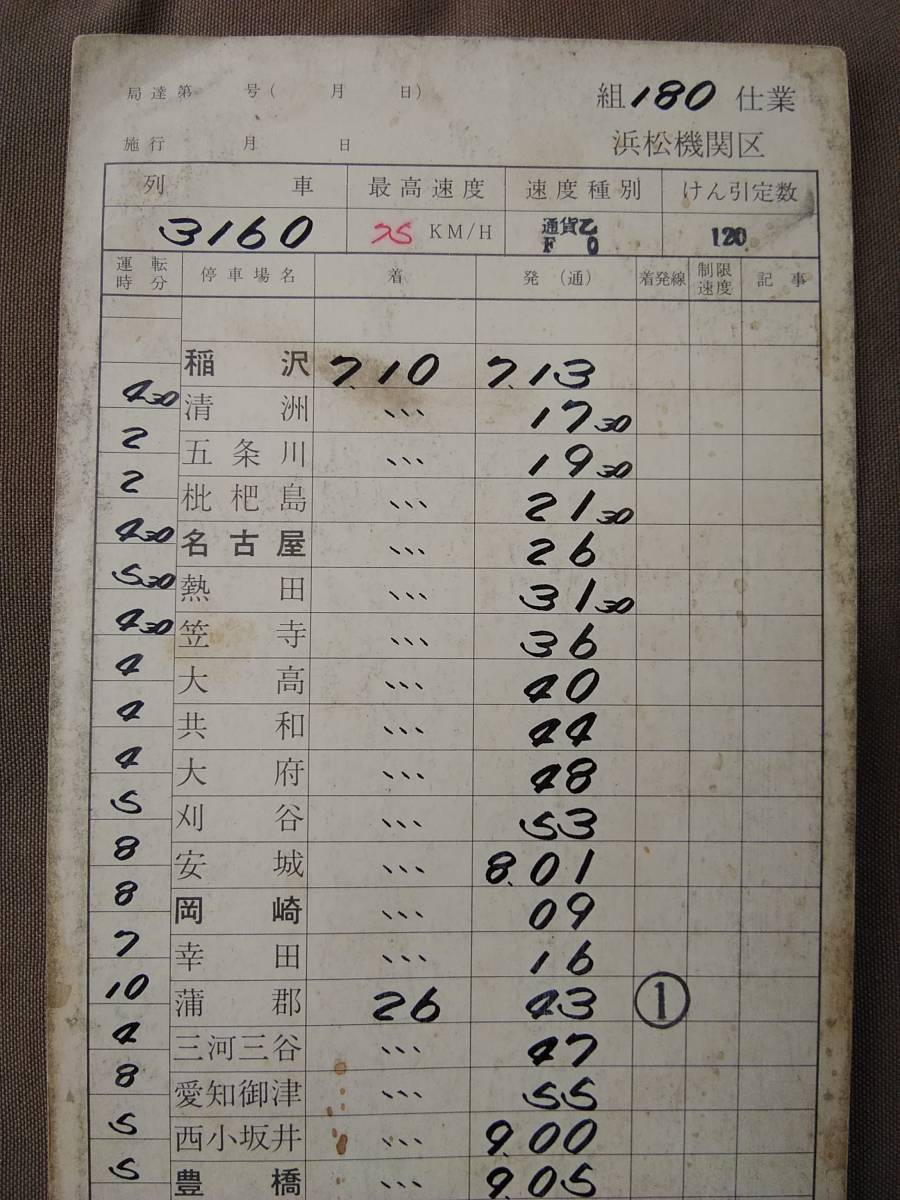 局達第　号(　月　日)　組180仕業
施行　月　日　浜松機関区
列車　最高速度　速度種別　けん引定数
3160　75 KM/H　通貨乙 F 0　120
運転時分　停車場名　着　発（通）　着発線　制限速度　記事
稲沢　7.10　7.13
4 30　清洲　･･･　17 30
2　五条川　･･･　19 30
2　枇杷島　･･･　21 30
4 30　名古屋　･･･　26
5 30　熱田　･･･　31 30
4 30　笠寺　･･･　36
4　大高　･･･　40
4　共和　･･･　44
4　大府　･･･　48
5　刈谷　･･･　53
8　安城　･･･　8.01
8　岡崎　･･･　09
7　幸田　･･･　16
10　蒲郡　26　43　①
4　三河三谷　･･･　47
8　愛知御津　･･･　55
5　西小坂井　･･･　9.00
5　豊橋　･･･　9.05